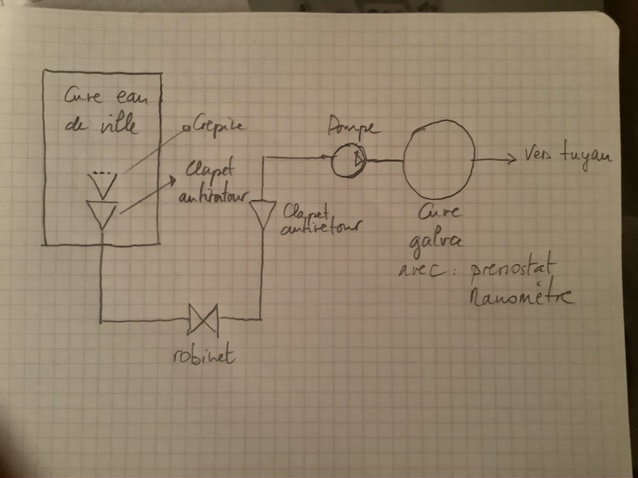 Cuve eau
de ville
Crépine
Clapet
antiretour
Pompe
Vers tuyau
Clapet
antiretour
Cuve
galva
avec : pressostat
Manomètre
robinet